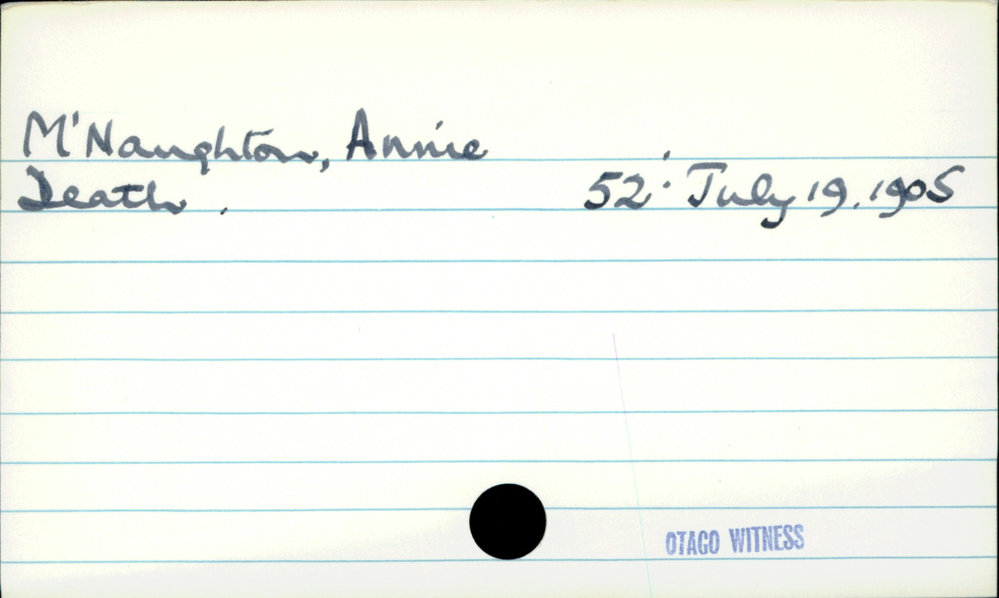 M'Naughton, Annie
Death. 52: July 19. 1905
OTAGO WITNESS